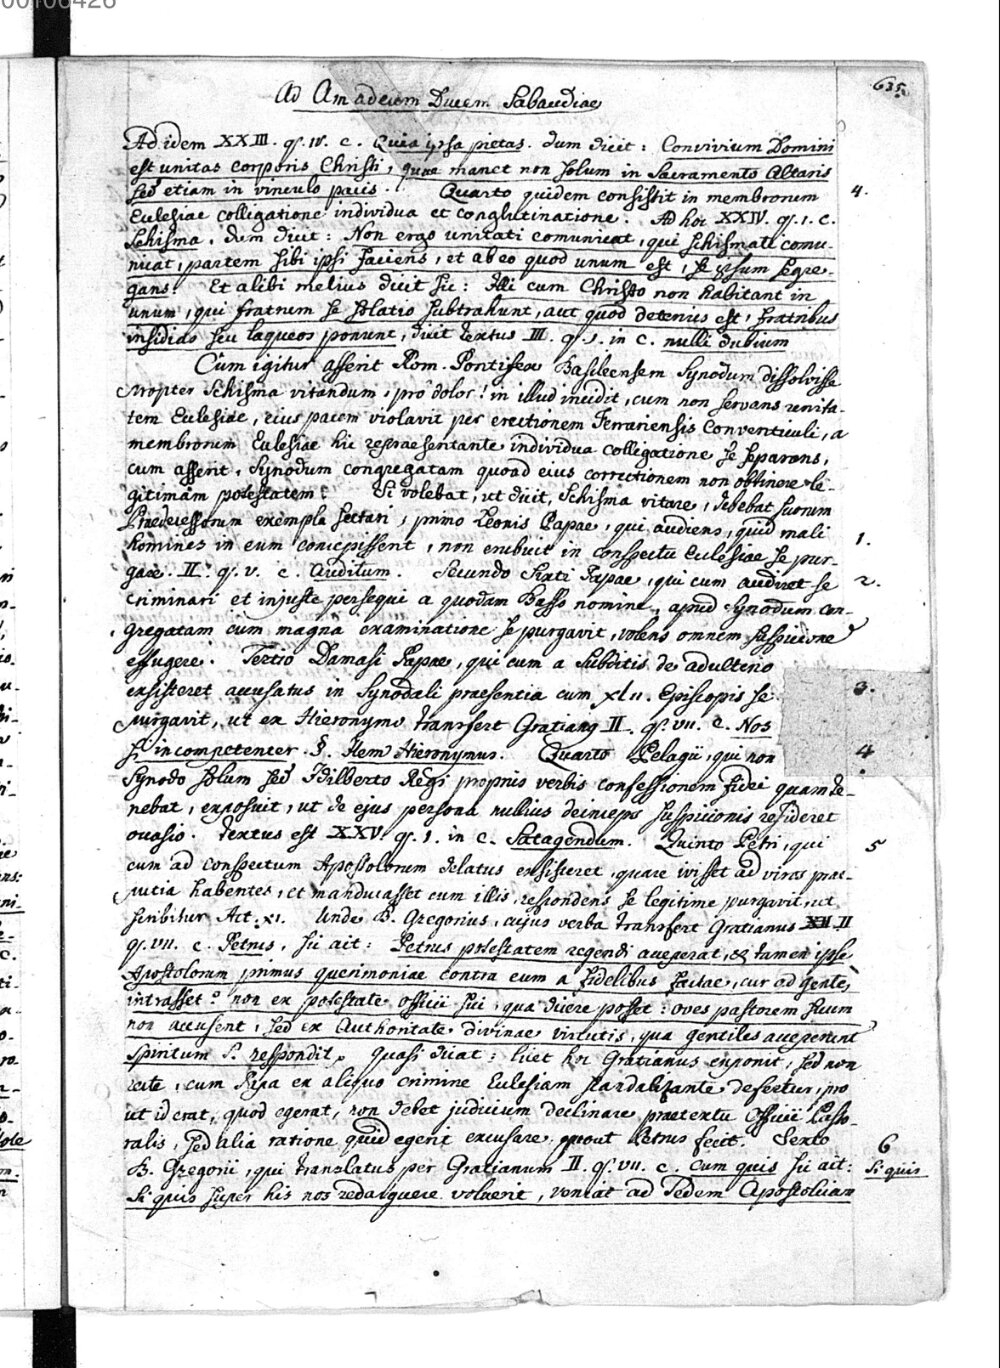 00106426
635.
Ad Amadeum Ducem Sabaudiae
Ad idem XXIII. q. IV. c. Quia ipsa pietas. dum dicit: Convivium Domini
est unitas corporis Christi, quae manet non solum in Sacramento Altaris
sed etiam in vinculo pacis. Quarto quidem consistit in membrorum 4.
Ecclesiae colligatione individua et conglutinatione. Ad hoc XXIV. q. 1. c.
Schisma. dum dicit: Non ergo unitati comunicat, qui schismati comu-
nicat, partem sibi ipsi faciens, et ab eo quod unum est, se ipsum segre-
gans. Et alibi melius dicit sic: Illi cum Christo non habitant in
unum, qui fratrum se solatio subtrahunt, aut quod deterius est, fratribus
insidias seu laqueos ponunt, dicit textus III. q. 1. in c. nulli dubium
Cum igitur asserit Rom. Pontifex Basileensem Synodum dissolvisse
propter Schisma vitandum, pro dolor! in illud incidit, cum non servans unita-
tem Ecclesiae, eius pacem violavit per erectionem Ferrariensis Conventiculi, a
membrorum Ecclesiae hic repraesentante individua colligatione se separans,
cum asserit, Synodum congregatam quoad eius correctionem non obtinere le-
gitimam potestatem. Si volebat, ut dicit, Schisma vitare, debebat suorum
Praedecessorum exempla sectari, primo Leonis Papae, qui audiens, quid mali
homines in eum concepissent, non erubuit in conspectu Ecclesiae se pur- 1.
gare. II. q. V. c. Auditum. Secundo Sixti Papae, qui cum audiret se 2.
criminari et injuste persequi a quodam Basso nomine, apud Synodum con-
gregatam cum magna examinatione se purgavit, volens omnem suspicionem
effugere. Tertio Damasi Papae, qui cum a subditis de adulterio
existeret accusatus in Synodali praesentia cum xlii. Episcopis se 3.
purgavit, ut ex Hieronymo transfert Gratianq II. q. VII. c. Nos
si incompetenter. §. Item Hieronymus. Quarto Pelagii, qui non 4.
Synodo solum sed Hilberto Regi propriis verbis confessionem fidei quam te-
nebat, exposuit, ut de ejus persona nullius deinceps suspicionis resideret
occasio. Textus est XXV. q. 1. in c. Satagendum. Quinto Petri, qui 5
cum ad conspectum Apostolorum delatus existeret, quare ivisset ad viros prae-
putia habentes, et manducasset cum illis, respondens se legitime purgavit, ut
scribitur Act. xi. Unde B. Gregorius, cujus verba transfert Gratianus II
q. VII. c. Petrus, sic ait: Petrus potestatem regendi acceperat, & tamen ipse
Apostolorum primus querimoniae contra eum a fidelibus factae, cur ad gentes
intrasset? non ex potestate officii sui, qua dicere posset: oves pastorem suum
non accusent, sed ex Authoritate divinae virtutis, qua gentiles acceperunt
Spiritum S. respondit, Quasi dicat: licet hoc Gratianus exponit, sed non
recte, cum Papa ex aliquo crimine Ecclesiam scandalizante defertur, pro
ut id erat, quod egerat, non debet judicium declinare praetextu Officii Pasto-
ralis, sed alia ratione quid egerit excusare, prout Petrus fecit. Sexto 6
B. Gregorii, qui translatus per Gratianum II. q. VII. c. cum quis sic ait: Si quis
Si quis super his nos redarguere voluerit, veniat ad Sedem Apostolicam